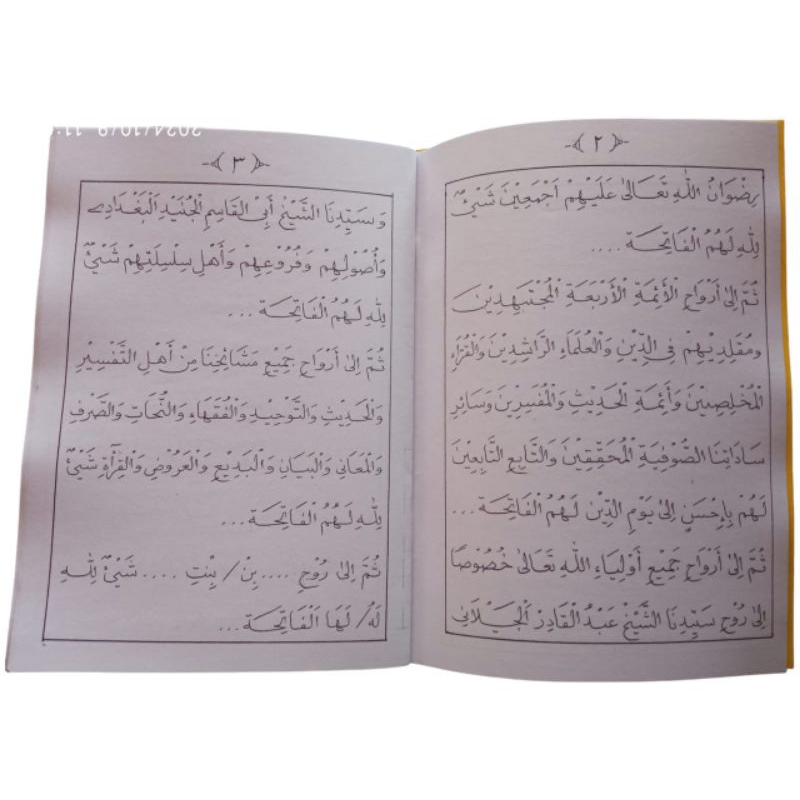 ﴿٢﴾
رِضْوَانُ اللّٰهِ تَعَالٰى عَلَيْهِمْ اَجْمَعِيْنَ شَيْئٌ
لِلّٰهِ لَهُمُ الْفَاتِحَةِ ....
ثُمَّ اِلٰى أَرْوَاحِ الْأَئِمَّةِ الْأَرْبَعَةِ الْمُجْتَهِدِيْنَ
وَمُقَلِّدِيْهِمْ فِي الدِّيْنِ وَالْعُلَمَاءِ الرَّاشِدِيْنَ وَالْقُرَّاءِ
الْمُخْلِصِيْنَ وَأَئِمَّةِ الْحَدِيْثِ وَالْمُفَسِّرِيْنَ وَسَائِرِ
سَادَاتِنَا الصُّوْفِيَّةِ الْمُحَقِّقِيْنَ وَالتَّابِعِ التَّابِعِيْنَ
لَهُمْ بِاِحْسَنٍ اِلٰى يَوْمِ الدِّيْنِ لَهُمُ الْفَاتِحَةِ ...
ثُمَّ اِلٰى أَرْوَاحِ جَمِيْعِ أَوْلِيَاءِ اللّٰهِ تَعَالٰى خُصُوْصًا
اِلٰى رُوْحِ سَيِّدِنَا الشَّيْخِ عَبْدُ الْقَادِرِ الْجَيْلَانِى
﴿٣﴾
وَسَيِّدِنَا الشَّيْخِ أَبِى الْقَاسِمِ الْجُنَيْدِ الْبَغْدَادِى
وَأُصُوْلِهِمْ وَفُرُوْعِهِمْ وَأَهْلِ سِلْسِلَتِهِمْ شَيْئٌ
لِلّٰهِ لَهُمُ الْفَاتِحَةِ ...
ثُمَّ اِلٰى أَرْوَاحِ جَمِيْعِ مَشَائِخِنَا مِنْ أَهْلِ التَّفْسِيْرِ
وَالْحَدِيْثِ وَالتَّوْحِيْدِ وَالْفُقَهَاءِ وَالنُّحَاتِ وَالصَّرْفِ
وَالْمَعَانِى وَالْبَيَانِ وَالْبَدِيْعِ وَالْعَرُوْضِ وَالْقِرَأَةِ شَيْئٌ
لِلّٰهِ لَهُمُ الْفَاتِحَةِ ...
ثُمَّ اِلٰى رُوْحِ .... بِنْ / بِنْتِ .... شَيْئٌ لِلّٰهِ
لَهُ / لَهَا الْفَاتِحَةِ ...
2024/10/9 11: